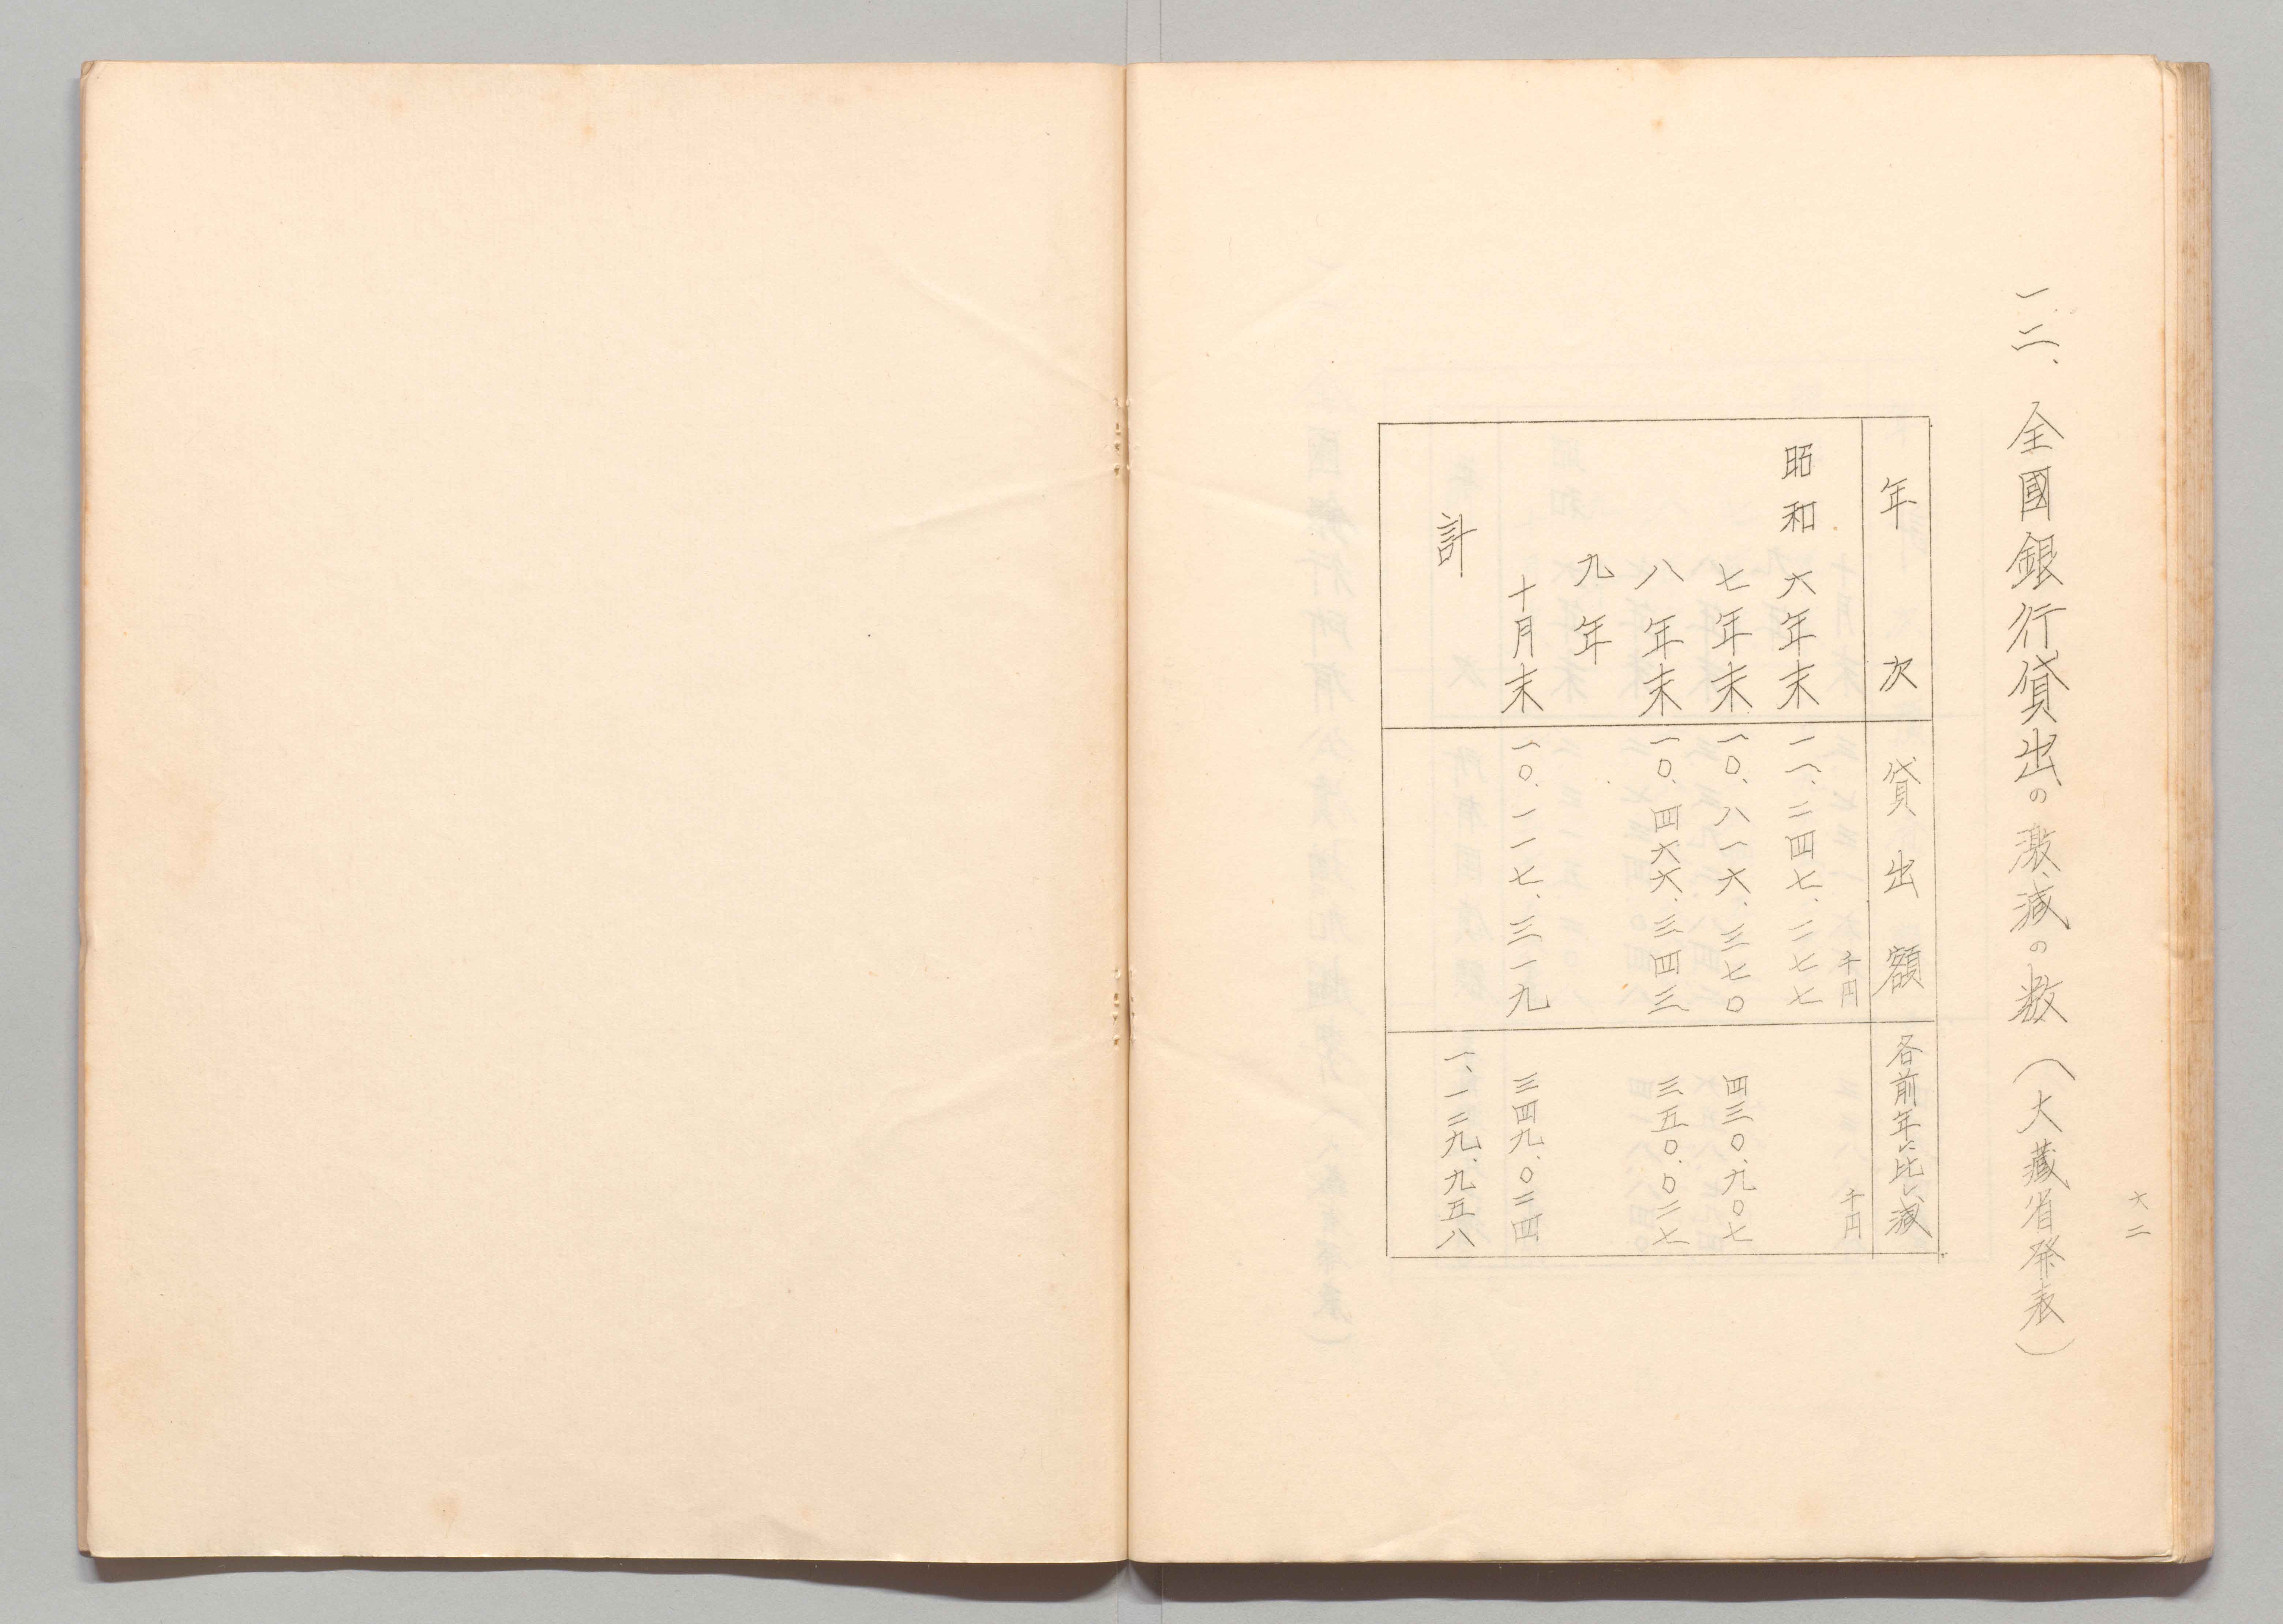 六二
一二、全國銀行貸出の激減の数(大藏省発表)
年次 貸出額 各前年に比し減
千円 千円
昭和六年末 一一、二四七、二七七
七年末 一〇、八一六、三七〇 四三〇、九〇七
八年末 一〇、四六六、三四三 三五〇、〇二七
九年
十月末 一〇、一一七、三一九 三四九、〇二四
計 一、一二九、九五八